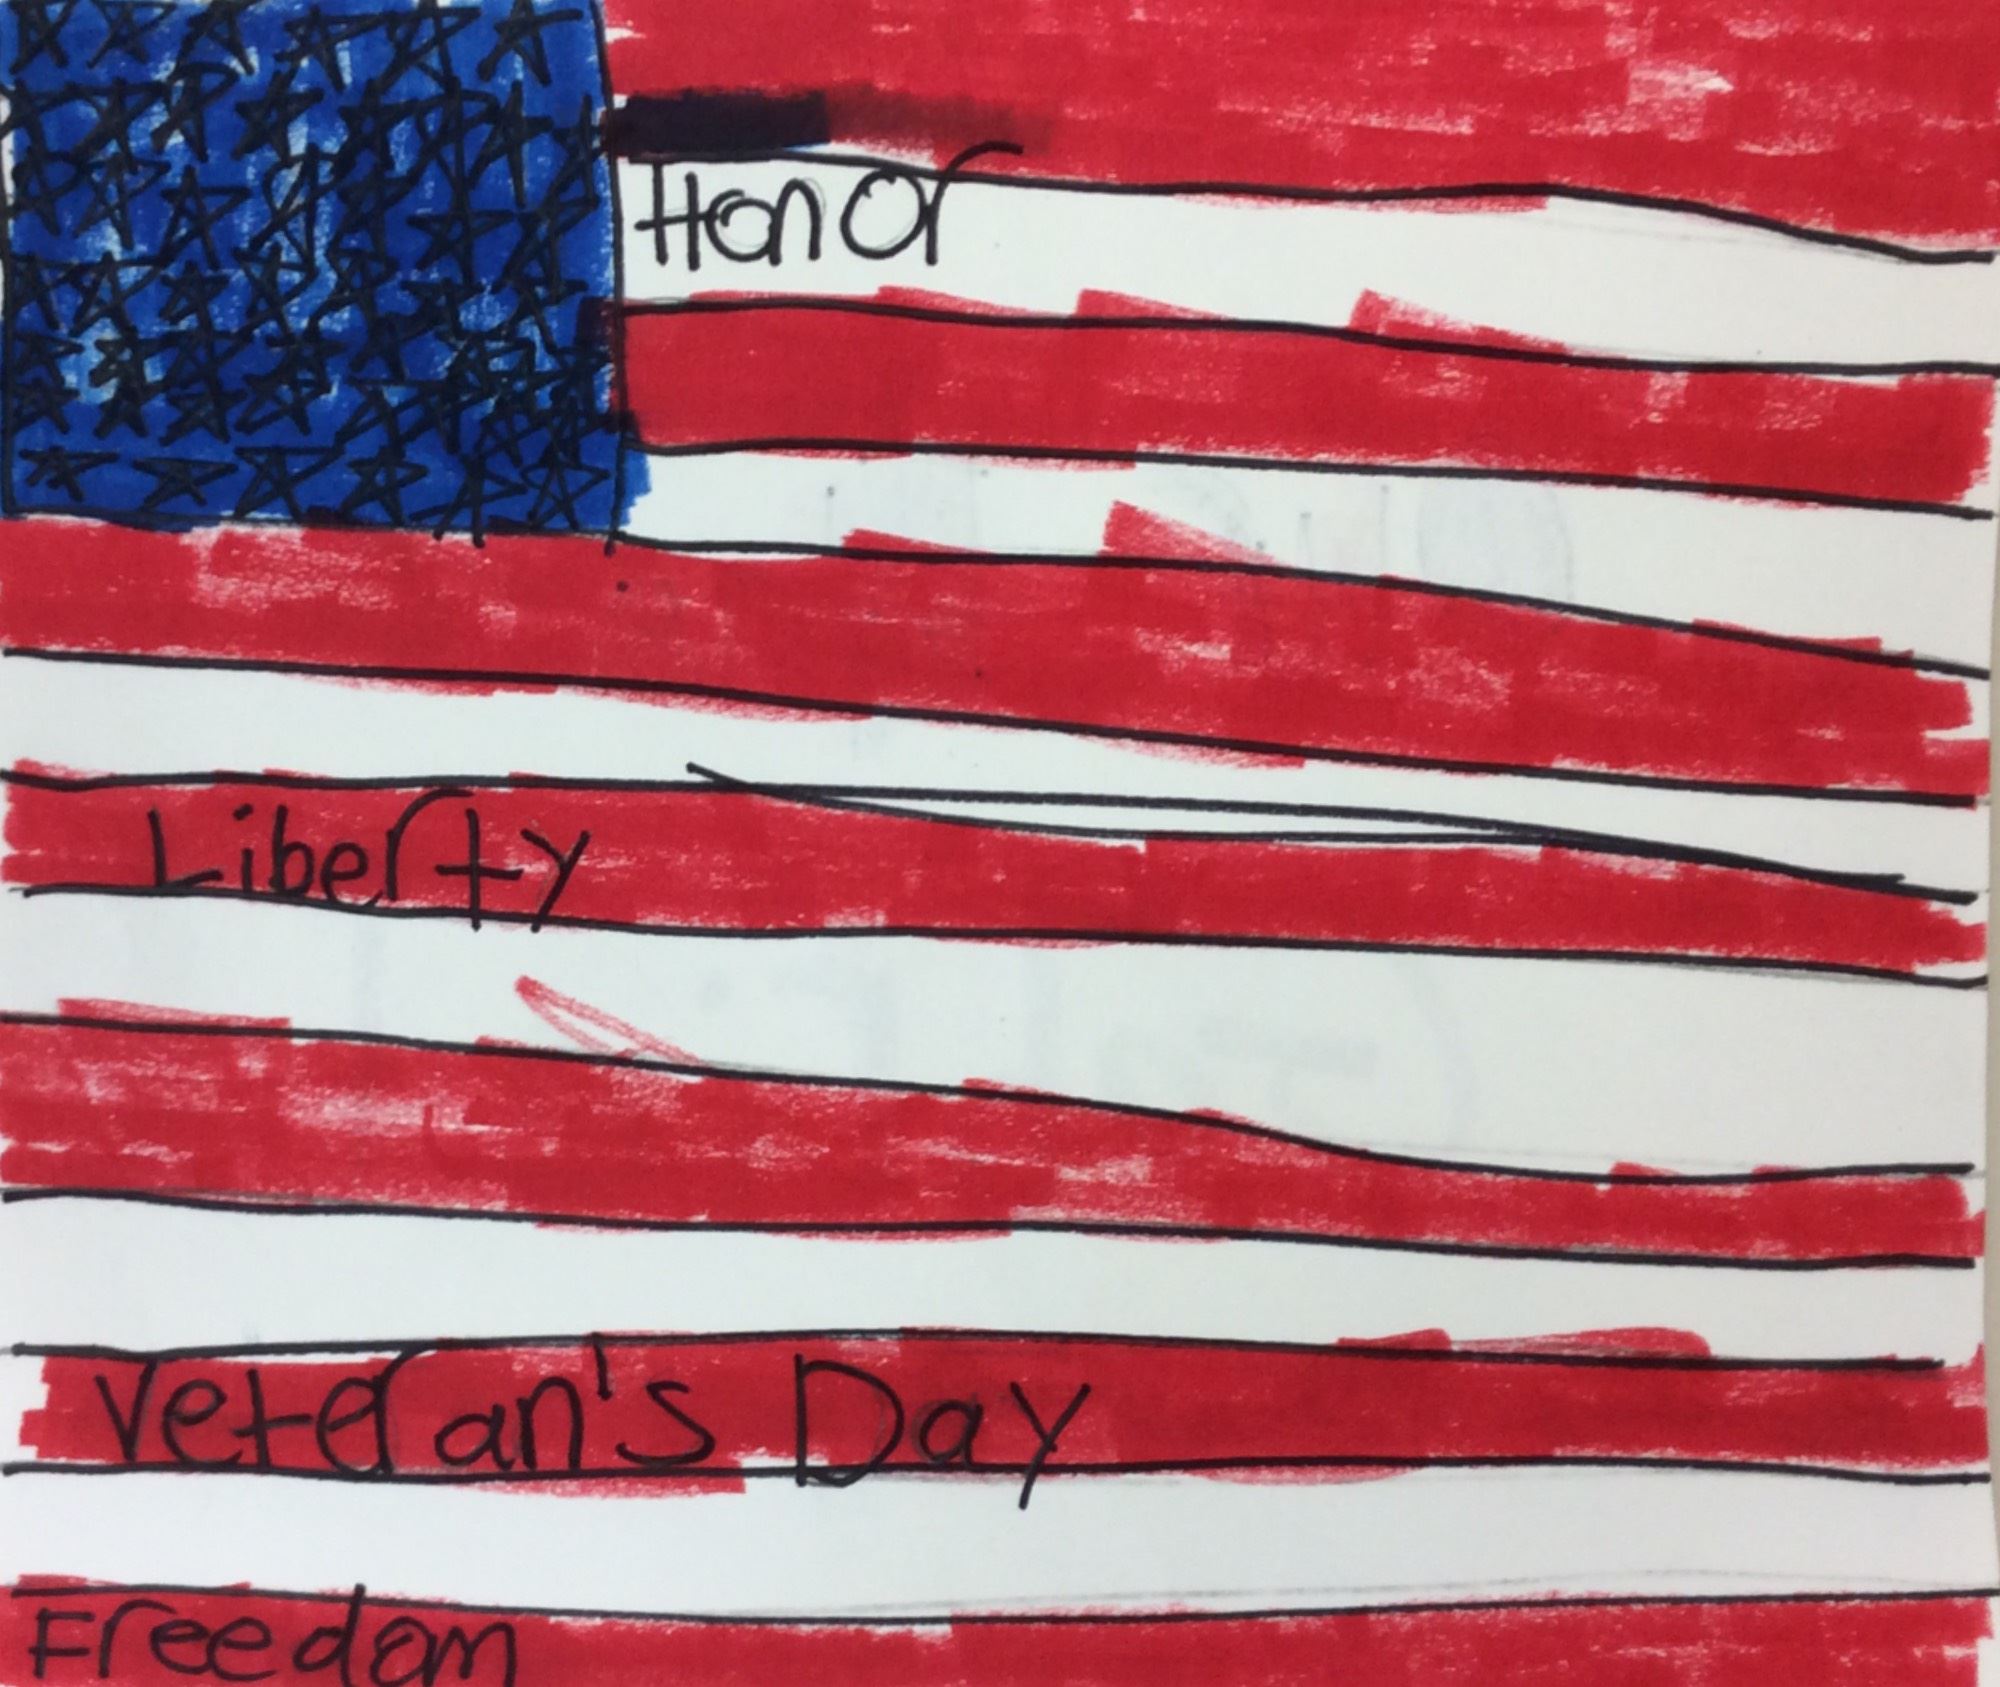 Honor
Liberty
Veteran's Day
Freedom